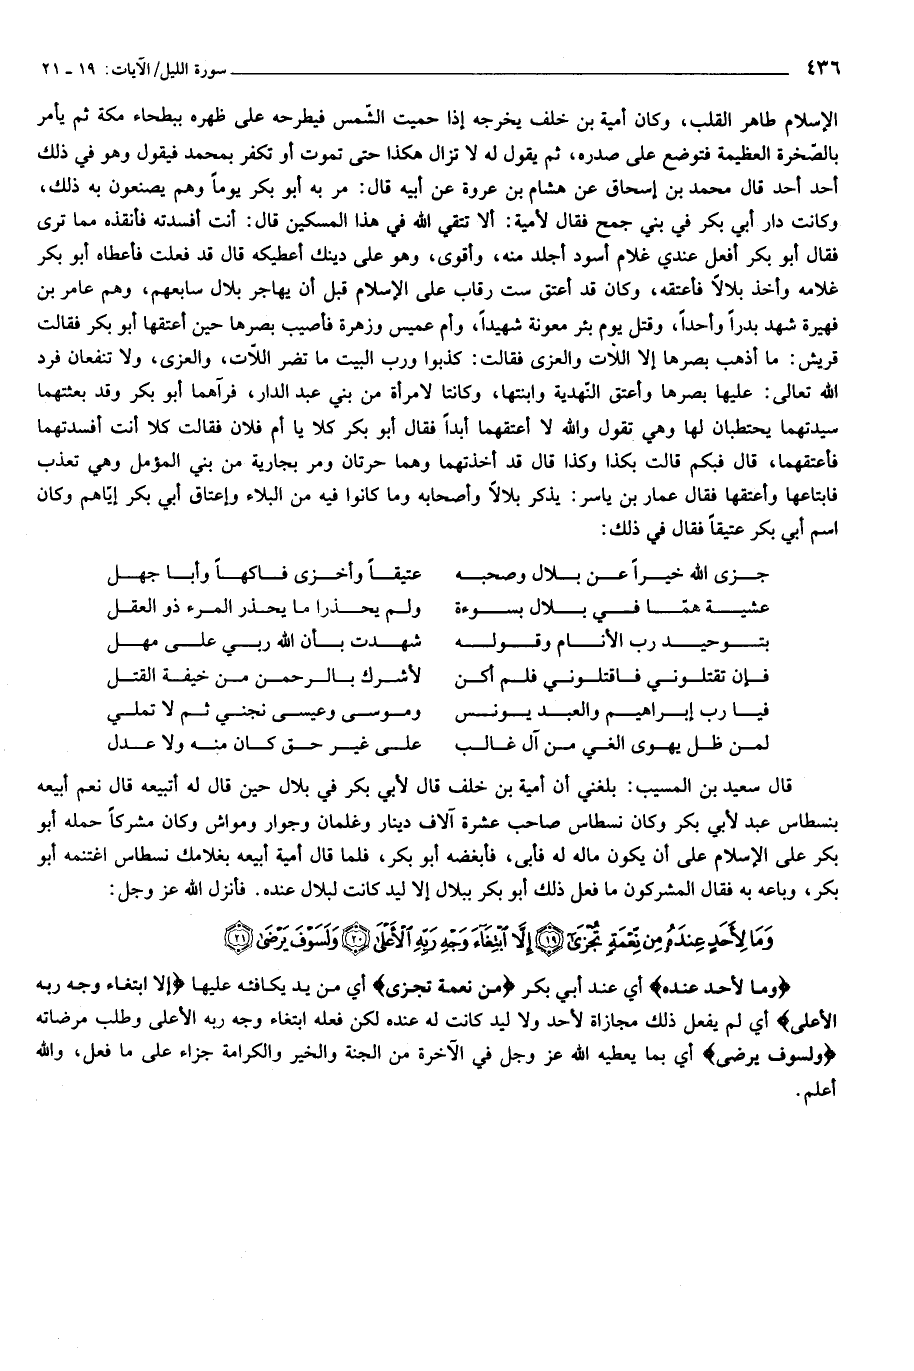 ٤٣٦ سورة الليل/ الآيات: ١٩ ـ ٢١
الإسلام طاهر القلب، وكان أمية بن خلف يخرجه إذا حميت الشّمس فيطرحه على ظهره ببطحاء مكة ثم يأمر
بالصّخرة العظيمة فتوضع على صدره، ثم يقول له لا تزال هكذا حتى تموت أو تكفر بمحمد فيقول وهو في ذلك
أحد أحد قال محمد بن إسحاق عن هشام بن عروة عن أبيه قال: مر به أبو بكر يوماً وهم يصنعون به ذلك،
وكانت دار أبي بكر في بني جمح فقال لأمية: ألا تتقي الله في هذا المسكين قال: أنت أفسدته فأنقذه مما ترى
فقال أبو بكر أفعل عندي غلام أسود أجلد منه، وأقوى، وهو على دينك أعطيكه قال قد فعلت فأعطاه أبو بكر
غلامه وأخذ بلالاً فأعتقه، وكان قد أعتق ست رقاب على الإسلام قبل أن يهاجر بلال سابعهم، وهم عامر بن
فهيرة شهد بدراً وأحداً، وقتل يوم بئر معونة شهيداً، وأم عميس وزهرة فأصيب بصرها حين أعتقها أبو بكر فقالت
قريش: ما أذهب بصرها إلا اللّات والعزى فقالت: كذبوا ورب البيت ما تضر اللّات، والعزى، ولا تنفعان فرد
الله تعالى: عليها بصرها وأعتق النّهدية وابنتها، وكانتا لامرأة من بني عبد الدار، فرآهما أبو بكر وقد بعثتهما
سيدتهما يحتطبان لها وهي تقول والله لا أعتقهما أبداً فقال أبو بكر كلا يا أم فلان فقالت كلا أنت أفسدتهما
فأعتقهما، قال فبكم قالت بكذا وكذا قال قد أخذتهما وهما حرتان ومر بجارية من بني المؤمل وهي تعذب
فابتاعها وأعتقها فقال عمار بن ياسر: يذكر بلالاً وأصحابه وما كانوا فيه من البلاء وإعتاق أبي بكر إيّاهم وكان
اسم أبي بكر عتيقاً فقال في ذلك:
جزى الله خيراً عن بلال وصحبه عتيقاً وأخزى فاكهاً وأبا جهل
عشية همّا في بلال بسوءة ولم يحذرا ما يحذر المرء ذو العقل
بتوحيد رب الأنام وقوله شهدت بأن الله ربي على مهل
فإن تقتلوني فاقتلوني فلم أكن لأشرك بالرحمن من خيفة القتل
فيا رب إبراهيم والعبد يونس وموسى وعيسى نجني ثم لا تملي
لمن ظل يهوى الغي من آل غالب على غير حق كان منه ولا عدل
قال سعيد بن المسيب: بلغني أن أمية بن خلف قال لأبي بكر في بلال حين قال له أتبيعه قال نعم أبيعه
بنسطاس عبد لأبي بكر وكان نسطاس صاحب عشرة آلاف دينار وغلمان وجوار ومواش وكان مشركاً حمله أبو
بكر على الإسلام على أن يكون ماله له فأبى، فأبغضه أبو بكر، فلما قال أمية أبيعه بغلامك نسطاس اغتنمه أبو
بكر، وباعه به فقال المشركون ما فعل ذلك أبو بكر ببلال إلا ليد كانت لبلال عنده. فأنزل الله عز وجل:
وَمَا لِأَحَدٍ عِندَهُ مِن نِّعْمَةٍ تُجْزَىٰ ﴿١٩﴾ إِلَّا ٱبْتِغَاءَ وَجْهِ رَبِّهِ ٱلْأَعْلَىٰ ﴿٢٠﴾ وَلَسَوْفَ يَرْضَىٰ ﴿٢١﴾
﴿وما لأحد عنده﴾ أي عند أبي بكر ﴿من نعمة تجزى﴾ أي من يد يكافئه عليها ﴿إلا ابتغاء وجه ربه
الأعلى﴾ أي لم يفعل ذلك مجازاة لأحد ولا ليد كانت له عنده لكن فعله ابتغاء وجه ربه الأعلى وطلب مرضاته
﴿ولسوف يرضى﴾ أي بما يعطيه الله عز وجل في الآخرة من الجنة والخير والكرامة جزاء على ما فعل، والله
أعلم.